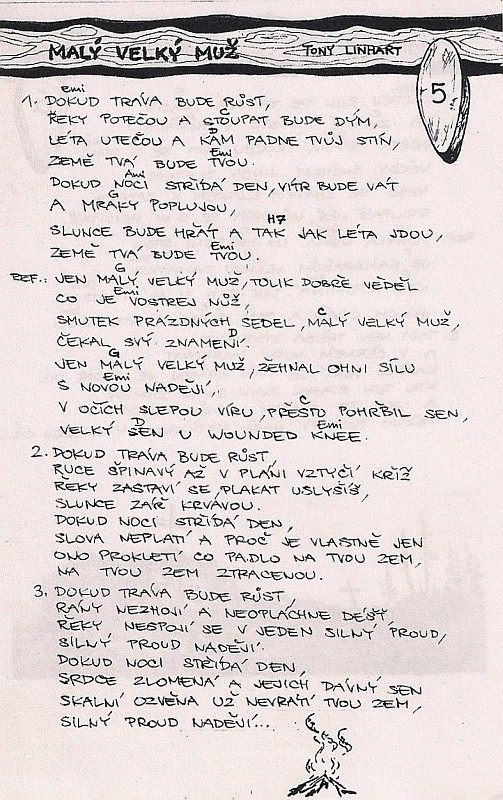 MALÝ VELKÝ MUŽ
TONY LINHART
5
Emi
1. DOKUD TRÁVA BUDE RŮST,
C
ŘEKY POTEČOU A STOUPAT BUDE DÝM,
D
LÉTA UTEČOU A KAM PADNE TVŮJ STÍN,
Emi
ZEMĚ TVÁ BUDE TVOU.
Ami
DOKUD NOCI STŘÍDÁ DEN, VÍTR BUDE VÁT
G
A MRAKY POPLUJOU,
H7
SLUNCE BUDE HŘÁT A TAK JAK LÉTA JDOU,
Emi
ZEMĚ TVÁ BUDE TVOU.
G
REF.: JEN MALÝ VELKÝ MUŽ, TOLIK DOBŘE VĚDĚL
Emi
CO JE VOSTREJ NŮŽ,
C
SMUTEK PRÁZDNÝCH SEDEL, MALÝ VELKÝ MUŽ,
D
ČEKAL SVÝ ZNAMENÍ.
G
JEN MALÝ VELKÝ MUŽ, ŽEHNAL OHNI SÍLU
Emi
S NOVOU NADĚJÍ,
C
V OČÍCH SLEPOU VÍRU, PŘESTO POHŘBIL SEN,
D Emi
VELKÝ SEN U WOUNDED KNEE.
2. DOKUD TRÁVA BUDE RŮST,
RUCE ŠPINAVÝ AŽ V PLÁNI VZTYČÍ KŘÍŽ
ŘEKY ZASTAVÍ SE, PLAKAT USLYŠÍŠ,
SLUNCE ZÁŘ KRVAVOU.
DOKUD NOCI STŘÍDÁ DEN,
SLOVA NEPLATÍ A PROČ JE VLASTNĚ JEN
ONO PROKLETÍ CO PADLO NA TVOU ZEM,
NA TVOU ZEM ZTRACENOU.
3. DOKUD TRÁVA BUDE RŮST,
RÁNY NEZHOJÍ A NEOPLÁCHNE DÉŠŤ,
ŘEKY NESPOJÍ SE V JEDEN SILNÝ PROUD,
SILNÝ PROUD NADĚJÍ.
DOKUD NOCI STŘÍDÁ DEN,
SRDCE ZLOMENÁ A JEJICH DÁVNÝ SEN
SKALNÍ OZVĚNA UŽ NEVRÁTÍ TVOU ZEM,
SILNÝ PROUD NADĚJÍ...